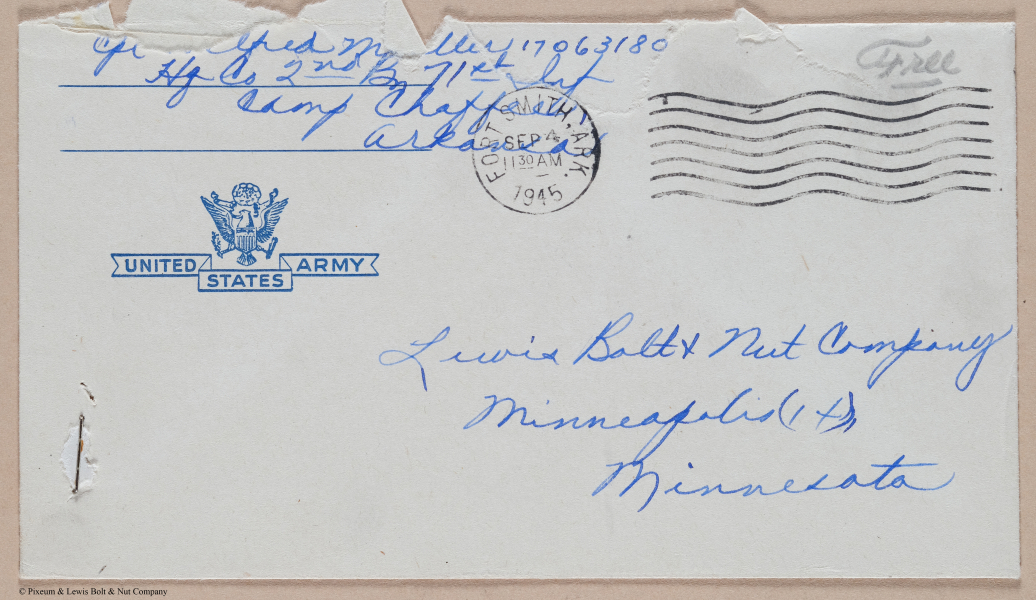 17063180
Hq Co 2nd Bn 71st Inf
Camp Chaffee
Arkansas
Free
FORT SMITH, ARK.
SEP 4
11 30 AM
1945
UNITED STATES ARMY
Lewis Bolt & Nut Company
Minneapolis (14),
Minnesota
© Pixeum & Lewis Bolt & Nut Company